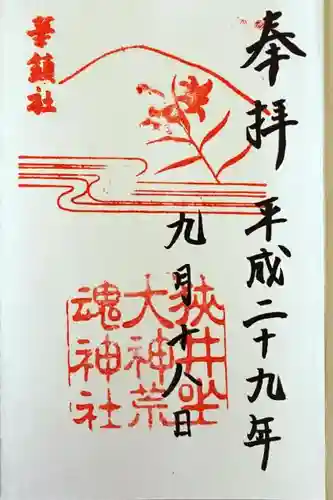 奉拝
平成二十九年
九月十八日
華鎮社
狭井坐
大神荒
魂神社